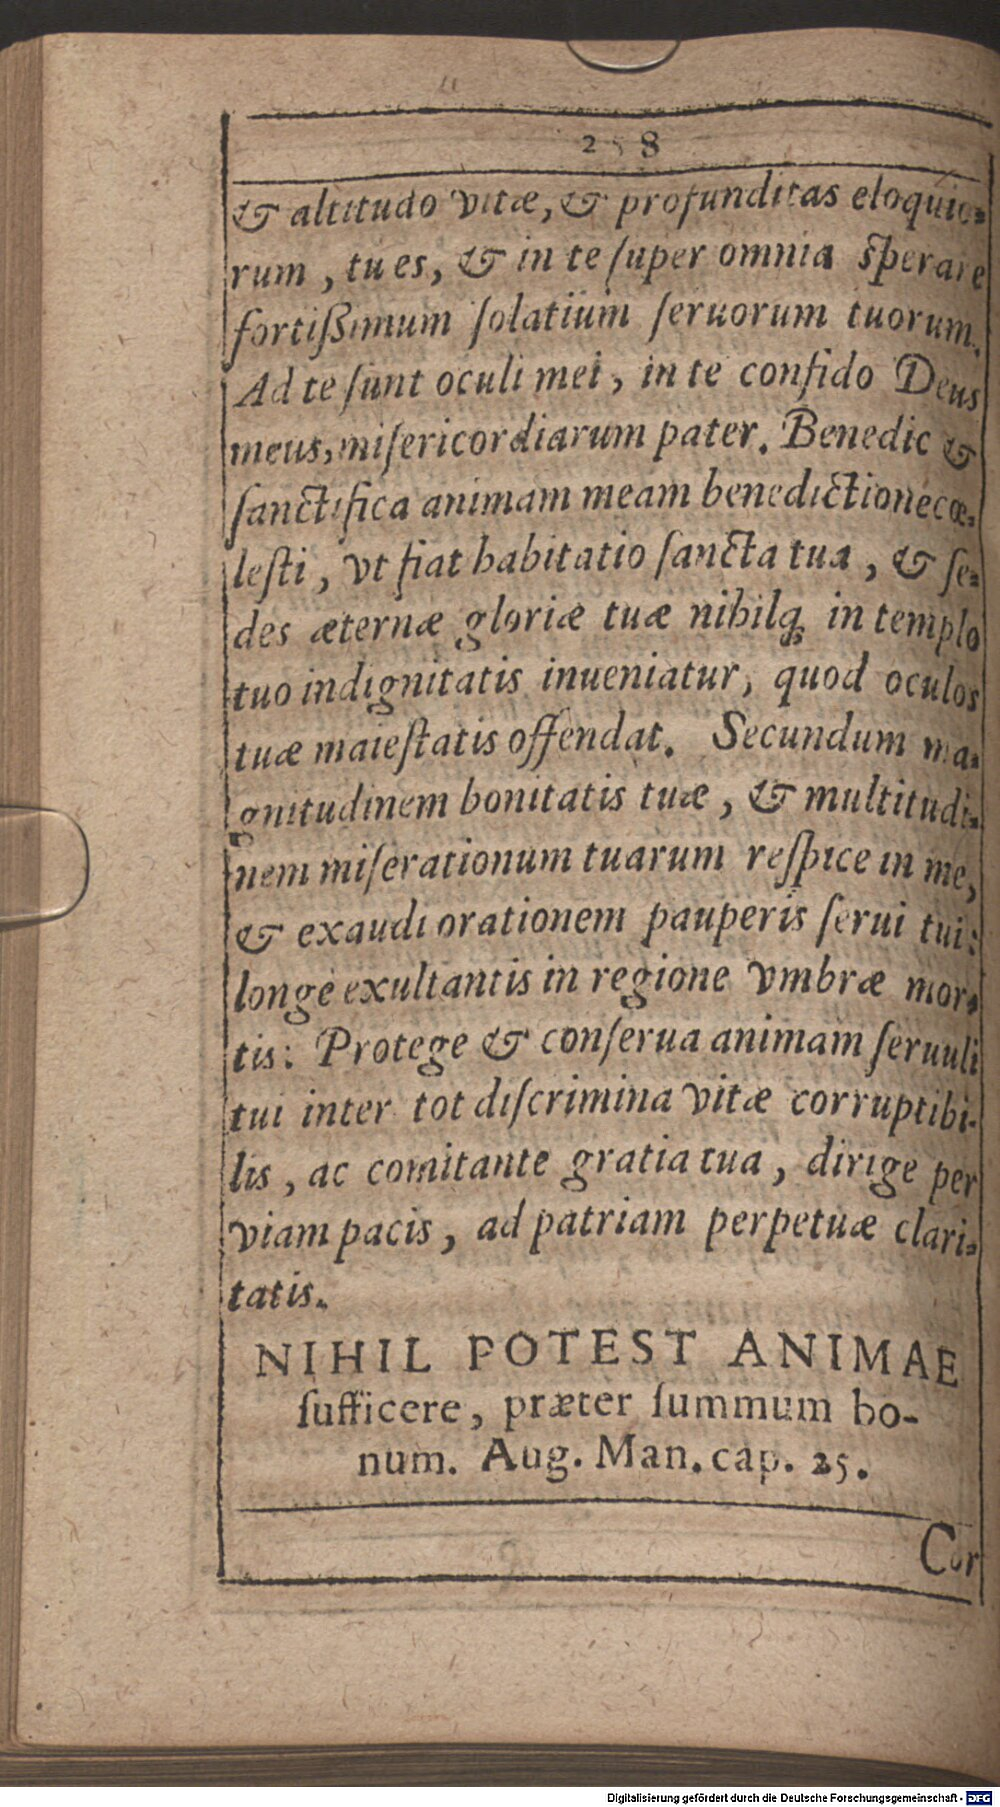 2 5 8
& altitudo vitæ, & profunditas eloquio-
rum, tu es, & in te ſuper omnia ſperare
fortiſſimum ſolatium ſeruorum tuorum.
Ad te ſunt oculi mei, in te confido Deus
meus, miſericordiarum pater. Benedic &
ſanctifica animam meam benedictione cœ-
leſti, vt fiat habitatio ſancta tua, & ſe-
des æternæ gloriæ tuæ nihilq́; in templo
tuo indignitatis inueniatur, quod oculos
tuæ maieſtatis offendat. Secundum ma-
gnitudinem bonitatis tuæ, & multitudi-
nem miſerationum tuarum reſpice in me,
& exaudi orationem pauperis ſerui tui:
longè exultantis in regione vmbræ mor-
tis: Protege & conſerua animam ſeruuli
tui inter tot diſcrimina vitæ corruptibi-
lis, ac comitante gratia tua, dirige per
viam pacis, ad patriam perpetuæ clari-
tatis.
NIHIL POTEST ANIMAE
ſufficere, præter ſummum bo-
num. Aug. Man. cap. 25.
Cor
Digitalisierung gefördert durch die Deutsche Forschungsgemeinschaft - DFG